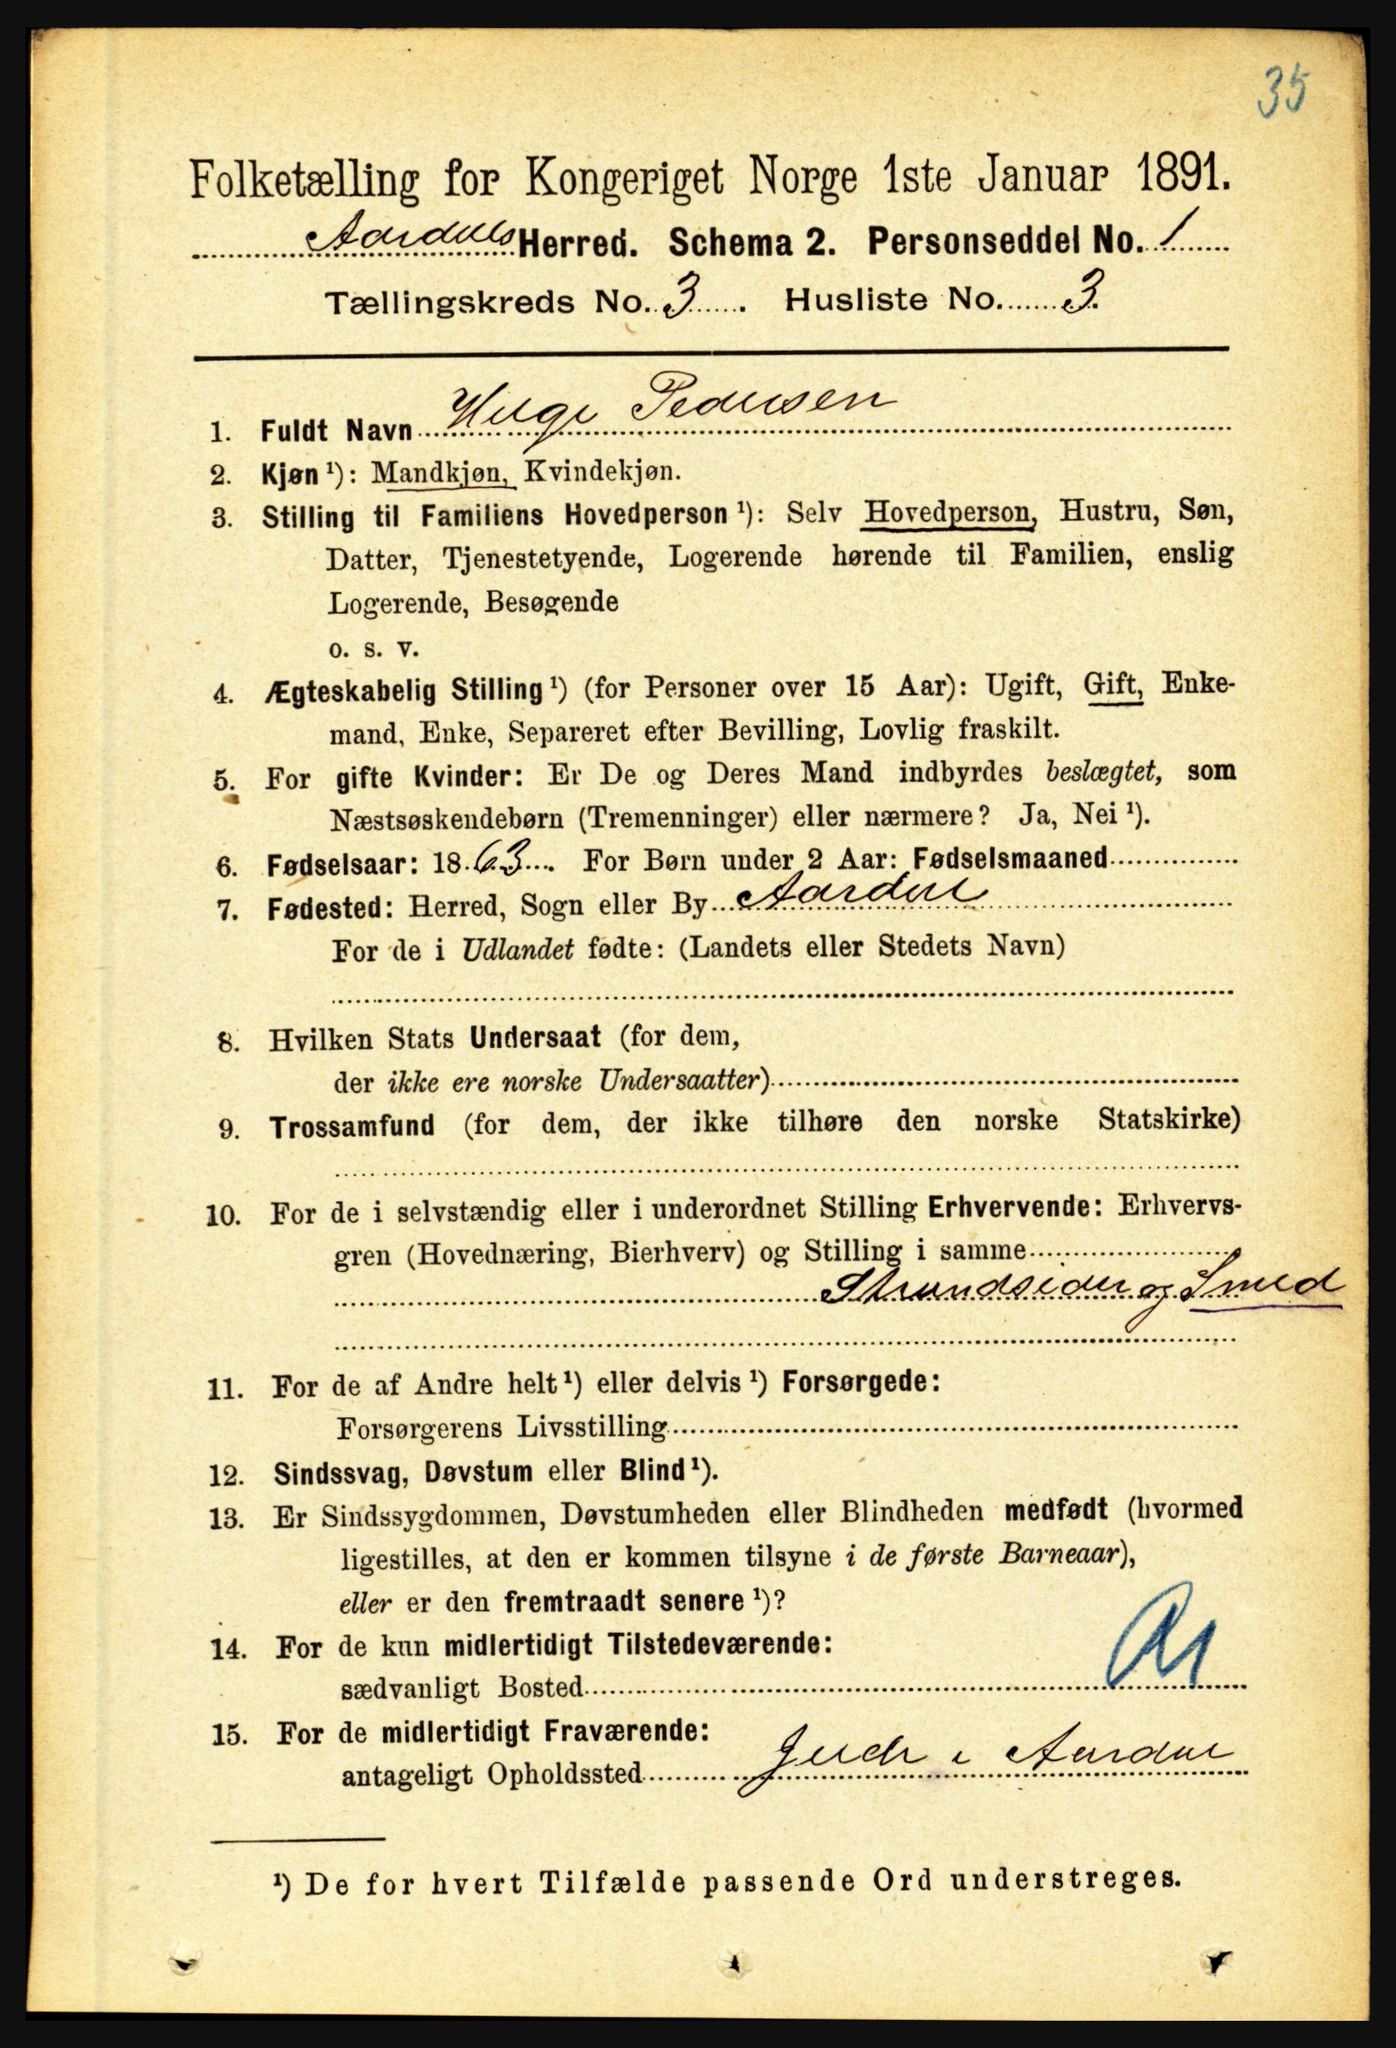 35
Folketælling for Kongeriget Norge 1ste Januar 1891.
Aardals Herred. Schema 2. Personseddel No. 1
Tællingskreds No. 3. Husliste No. 3.
1. Fuldt Navn Helge Pedersen
2. Kjøn ¹): Mandkjøn, Kvindekjøn.
3. Stilling til Familiens Hovedperson ¹): Selv Hovedperson, Hustru, Søn,
Datter, Tjenestetyende, Logerende hørende til Familien, enslig
Logerende, Besøgende
o. s. v.
4. Ægteskabelig Stilling ¹) (for Personer over 15 Aar): Ugift, Gift, Enke-
mand, Enke, Separeret efter Bevilling, Lovlig fraskilt.
5. For gifte Kvinder: Er De og Deres Mand indbyrdes beslægtet, som
Næstsøskendebørn (Tremenninger) eller nærmere? Ja, Nei ¹).
6. Fødselsaar: 1863. For Børn under 2 Aar: Fødselsmaaned
7. Fødested: Herred, Sogn eller By Aardal
For de i Udlandet fødte: (Landets eller Stedets Navn)
8. Hvilken Stats Undersaat (for dem,
der ikke ere norske Undersaatter)
9. Trossamfund (for dem, der ikke tilhøre den norske Statskirke)
10. For de i selvstændig eller i underordnet Stilling Erhvervende: Erhvervs-
gren (Hovednæring, Bierhverv) og Stilling i samme
Strandsider og Smed
11. For de af Andre helt ¹) eller delvis ¹) Forsørgede:
Forsørgerens Livsstilling
12. Sindssvag, Døvstum eller Blind ¹).
13. Er Sindssygdommen, Døvstumheden eller Blindheden medfødt (hvormed
ligestilles, at den er kommen tilsyne i de første Barneaar),
eller er den fremtraadt senere ¹)?
14. For de kun midlertidigt Tilstedeværende:
sædvanligt Bosted
15. For de midlertidigt Fraværende:
antageligt Opholdssted i Aardal
¹) De for hvert Tilfælde passende Ord understreges.